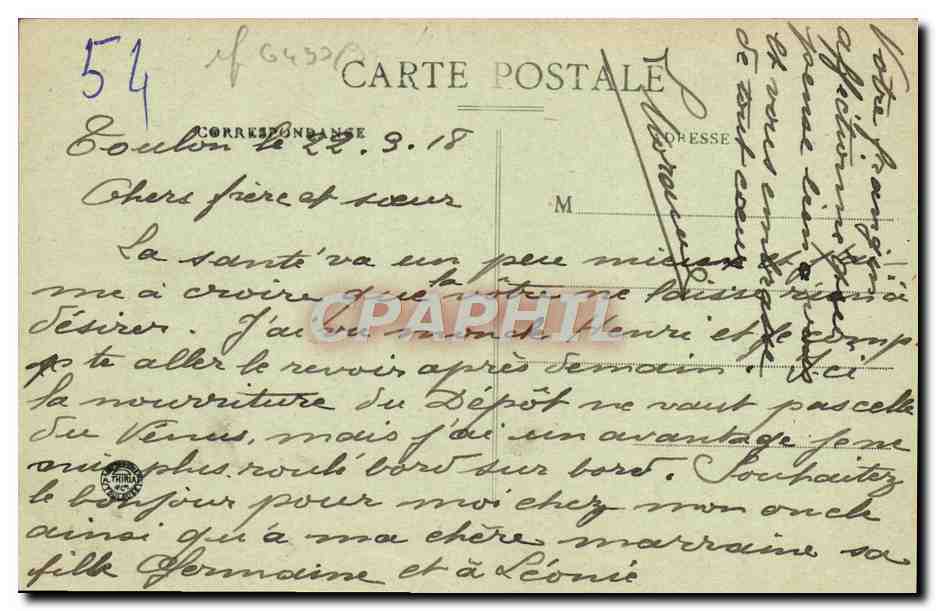 54
CARTE POSTALE
CORRESPONDANCE
ADRESSE
M
Toulon le 22.3.18
Chers frère et sœur
La santé va un peu mieux et j'ai
me à croire que la vôtre ne laisse rien à
désirer. J'ai vu mon ch. Henri et je comp-
te aller le revoir après demain. Ici
la nourriture du Dépôt ne vaut pas celle
du Vénus, mais j'ai un avantage je ne
suis plus roulé bord sur bord. Souhaitez
le bonjour pour moi chez mon oncle
ainsi qu'à ma chère marraine sa
fille Germaine et à Léonie
Votre frangin
affectionné qui
pense bien à vous
et vous embrasse
de tout cœur
THIRIAT
CPAPHIL